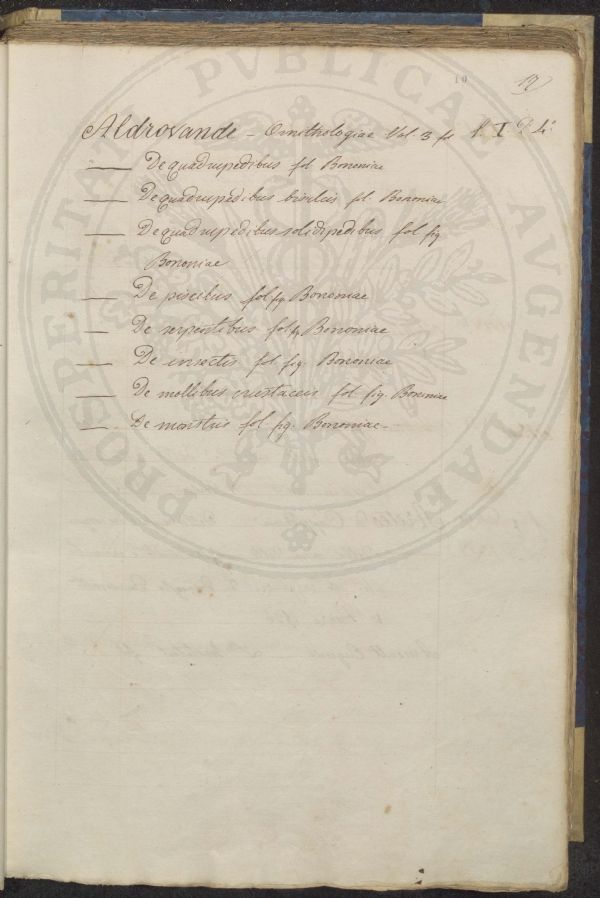 19 17
Aldrovande - Ornithologiae Vol. 3 fo I
— De quadrupedibus fol Bononiae
— De quadrupedibus bisulcis fol Bononiae
— De quadrupedibus solidipedibus fol fig
Bononiae
— De piscibus fol fig. Bononiae
— De serpentibus fol fig Bononiae
— De insectis fol fig. Bononiae
— De mollibus crustaceis fol fig. Bononiae
— De monstris fol fig. Bononiae
PROSPERITATI PVBLICAE AVGENDAE